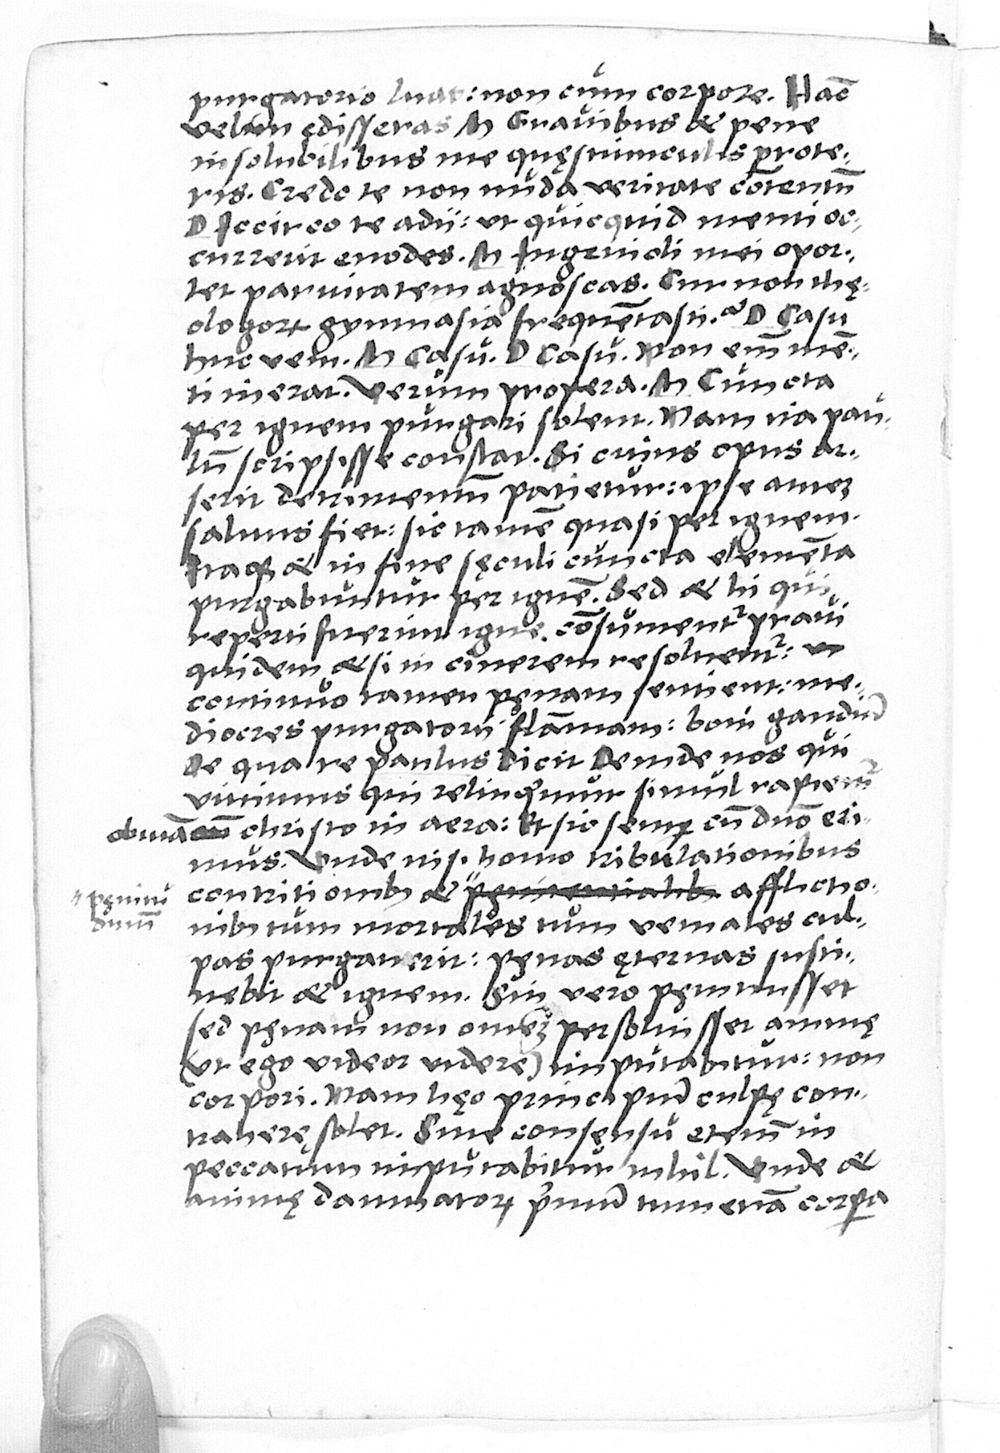 purgatorio luat: non cum corpore. Hac̄
velim ędisseras M Gravibus & pene
insolubilibus me quęstiunculis prote-
ris. Credo te non nuda veritate cōtentū
D Iccirco te adii: ut quicquid menti oc-
currerit enodes. M Ingenioli mei opor-
tet parvitatem agnoscas. Cur non thę-
ologorꝝ gymnasia frequētasti? D Casu
huc veni. M Casu. D Casu. Non em̄ mē-
ti inerat. Verum propera. M Cuncta
per ignem purgari solent. Nam ita pau-
lū scripsisse constat. Si cuius opus ar-
serit detrimentū patietur: ipse autez
salvus fiet: sic tamē quasi per ignem.
Itaqȝ & in fine sęculi cuncta elemēta
purgabuntur per ignē. Sed & hi qui
reperti fuerint igne cōsument᷑ pravi
quidem & si in cinerem resolvent᷑: ut
continuo tamen pęnam sentient: me-
diocres purgatorii flāmam: boni gaudiū
De qua re paulus dicit Deinde nos qui
vivimus qui relinquimur simul rapiem᷑
obviā christo in aera: Et sic semp̱ cū dn̄o eri-
mus. Unde nisi homo tribulationibus
contritionibꝫ & pęnitentialibꝫ afflictio-
pęnitū
dinū
nibꝫ tum mortales tum veniales cul-
pas purgaverit: pęnas ęternas susti-
nebit & ignem. Sin vero pęnituisset
sed pęnam non omnēz persolvisset animę
(ut ego videor videre) imputabitur: non
corpori. Nam hęc principiū culpę con-
traherę solet. Sine consęnsu etenī in
peccatum imputabitur nihil. Unde &
animę damnatorꝝ prīmū tum etiā corꝑa